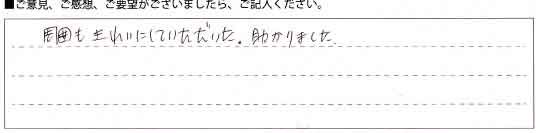 ■ご意見、ご感想、ご要望がございましたら、ご記入ください。
周囲もきれいにしていただいた。助かりました